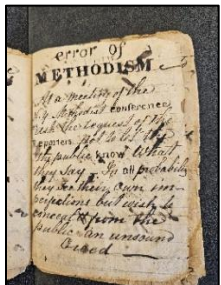 error of
METHODISM
At a meeting of the
N.Y. Methodist conference
the request of the
not to let
the public know What
they say In all probability
they see their own im-
perfections but wish to
conceal from the
public an unsound
Creed